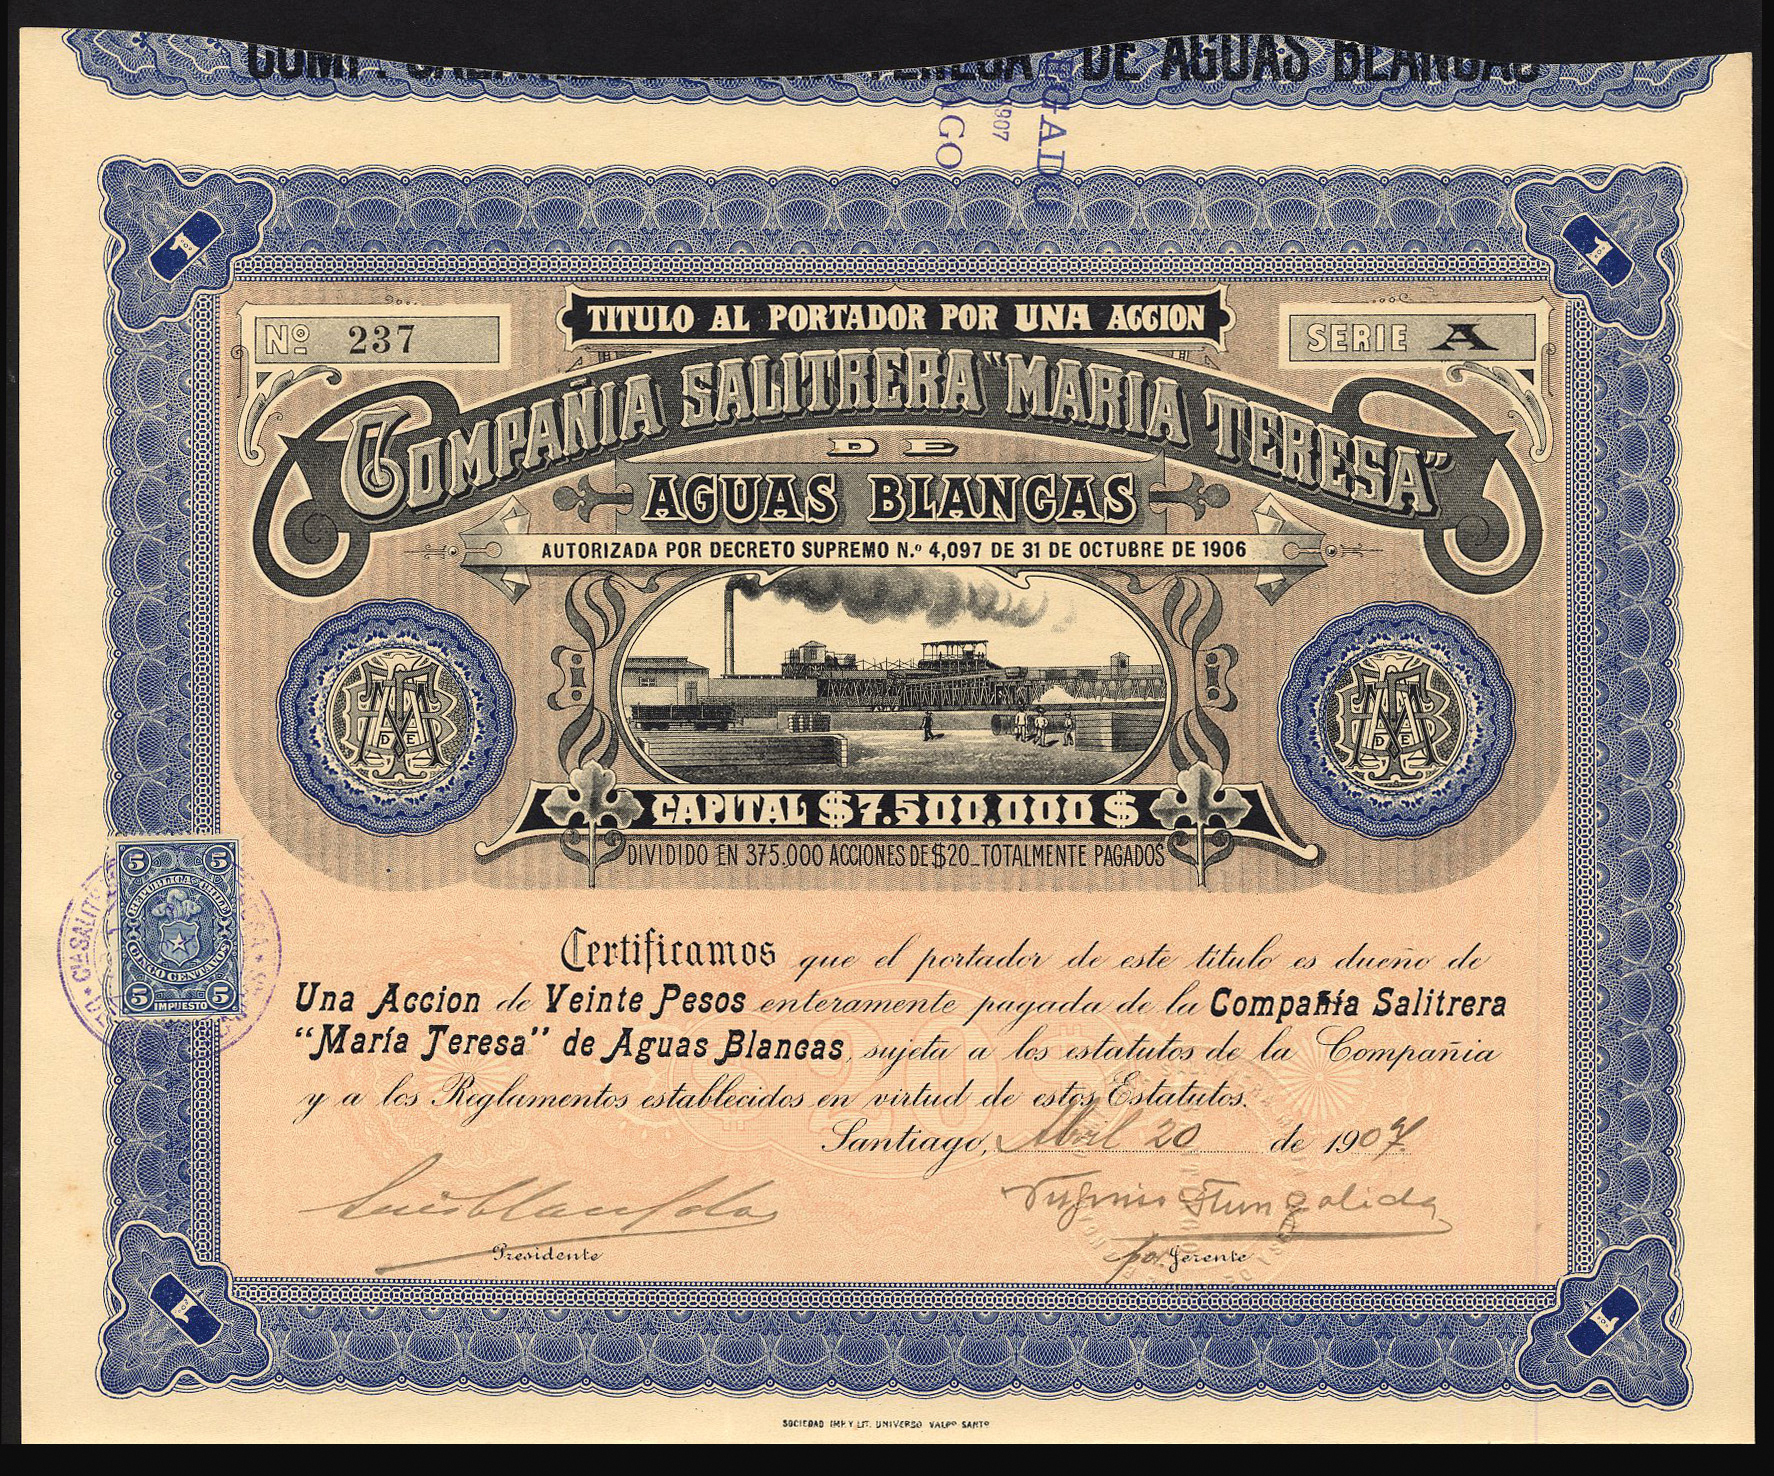 DE AGUAS BLANCAS
1907
Nº 237
TITULO AL PORTADOR POR UNA ACCION
SERIE A
COMPAÑIA SALITRERA "MARIA TERESA"
DE
AGUAS BLANCAS
AUTORIZADA POR DECRETO SUPREMO N.º 4,097 DE 31 DE OCTUBRE DE 1906
CAPITAL $7.500.000 $
DIVIDIDO EN 375.000 ACCIONES DE $20_TOTALMENTE PAGADOS
5 5
REPÚBLICA CHILE
CINCO CENTAVOS
5 5
IMPUESTO
Certificamos que el portador de este título es dueño de
Una Accion de Veinte Pesos enteramente pagada de la Compañía Salitrera
"María Teresa" de Aguas Blancas, sujeta a los estatutos de la Compañia
y a los Reglamentos establecidos en virtud de estos Estatutos.
Santiago, Abril 20 de 1907.
Presidente
por Gerente
SOCIEDAD IMP. Y LIT. UNIVERSO VALPº SANTº